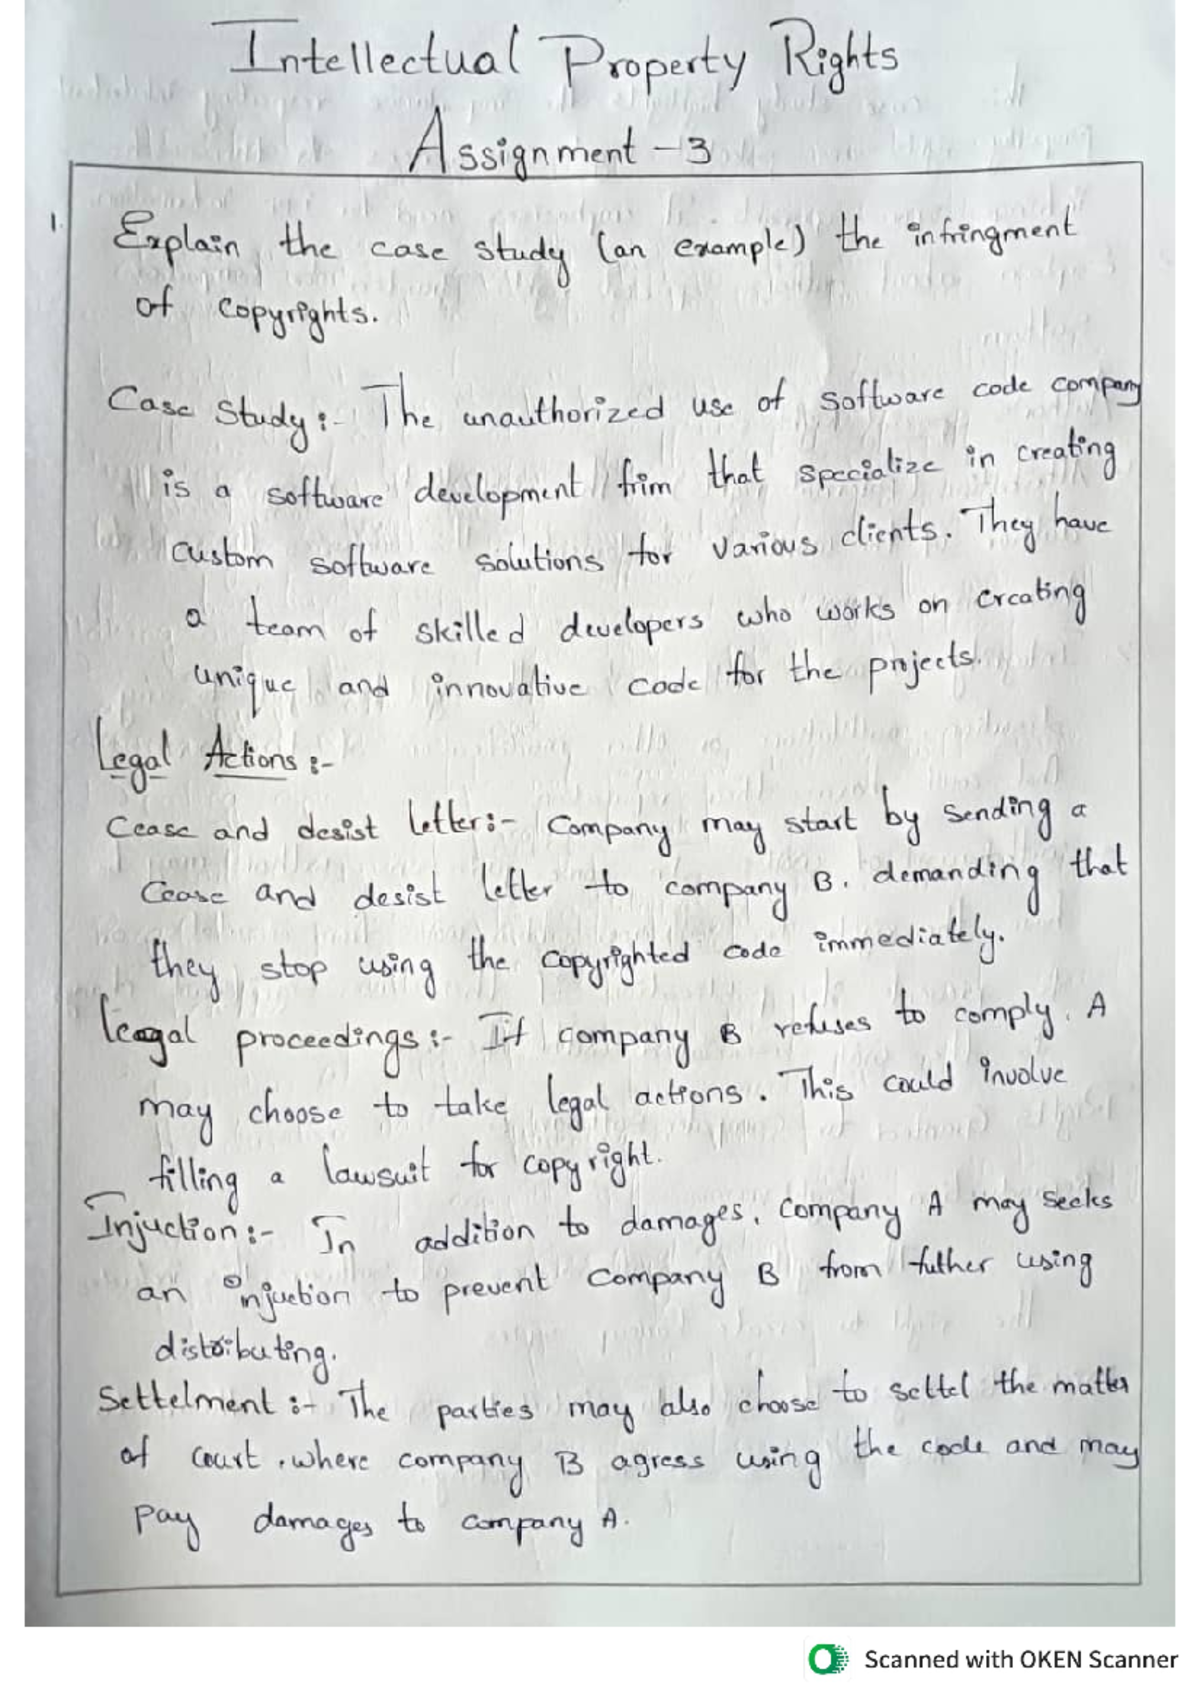 Intellectual Property Rights
Assignment - 3
1. Explain the case study (an example) the infringment
of copyrights.
Case Study :- The unauthorized use of software code company
is a software development frim that specialize in creating
custom software solutions for various clients. They have
a team of skilled developers who works on creating
unique and innovative code for the projects.
Legal Actions :-
Cease and desist letter:- Company may start by sending a
Cease and desist letter to company B. demanding that
they stop using the copyrighted code immediately.
Leagal proceedings :- If company B refuses to comply. A
may choose to take legal actions. This could involve
filling a lawsuit for copyright.
Injuction :- In addition to damages. Company A may seeks
an injuction to prevent Company B from futher using
distributing.
Settelment :- The parties may also choose to settel the matter
of court. where company B agress using the code and may
pay damages to company A.
Scanned with OKEN Scanner